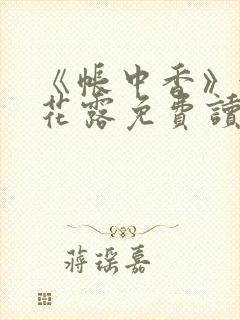 《帳中香》
花露免費讀
蔣琛嘉